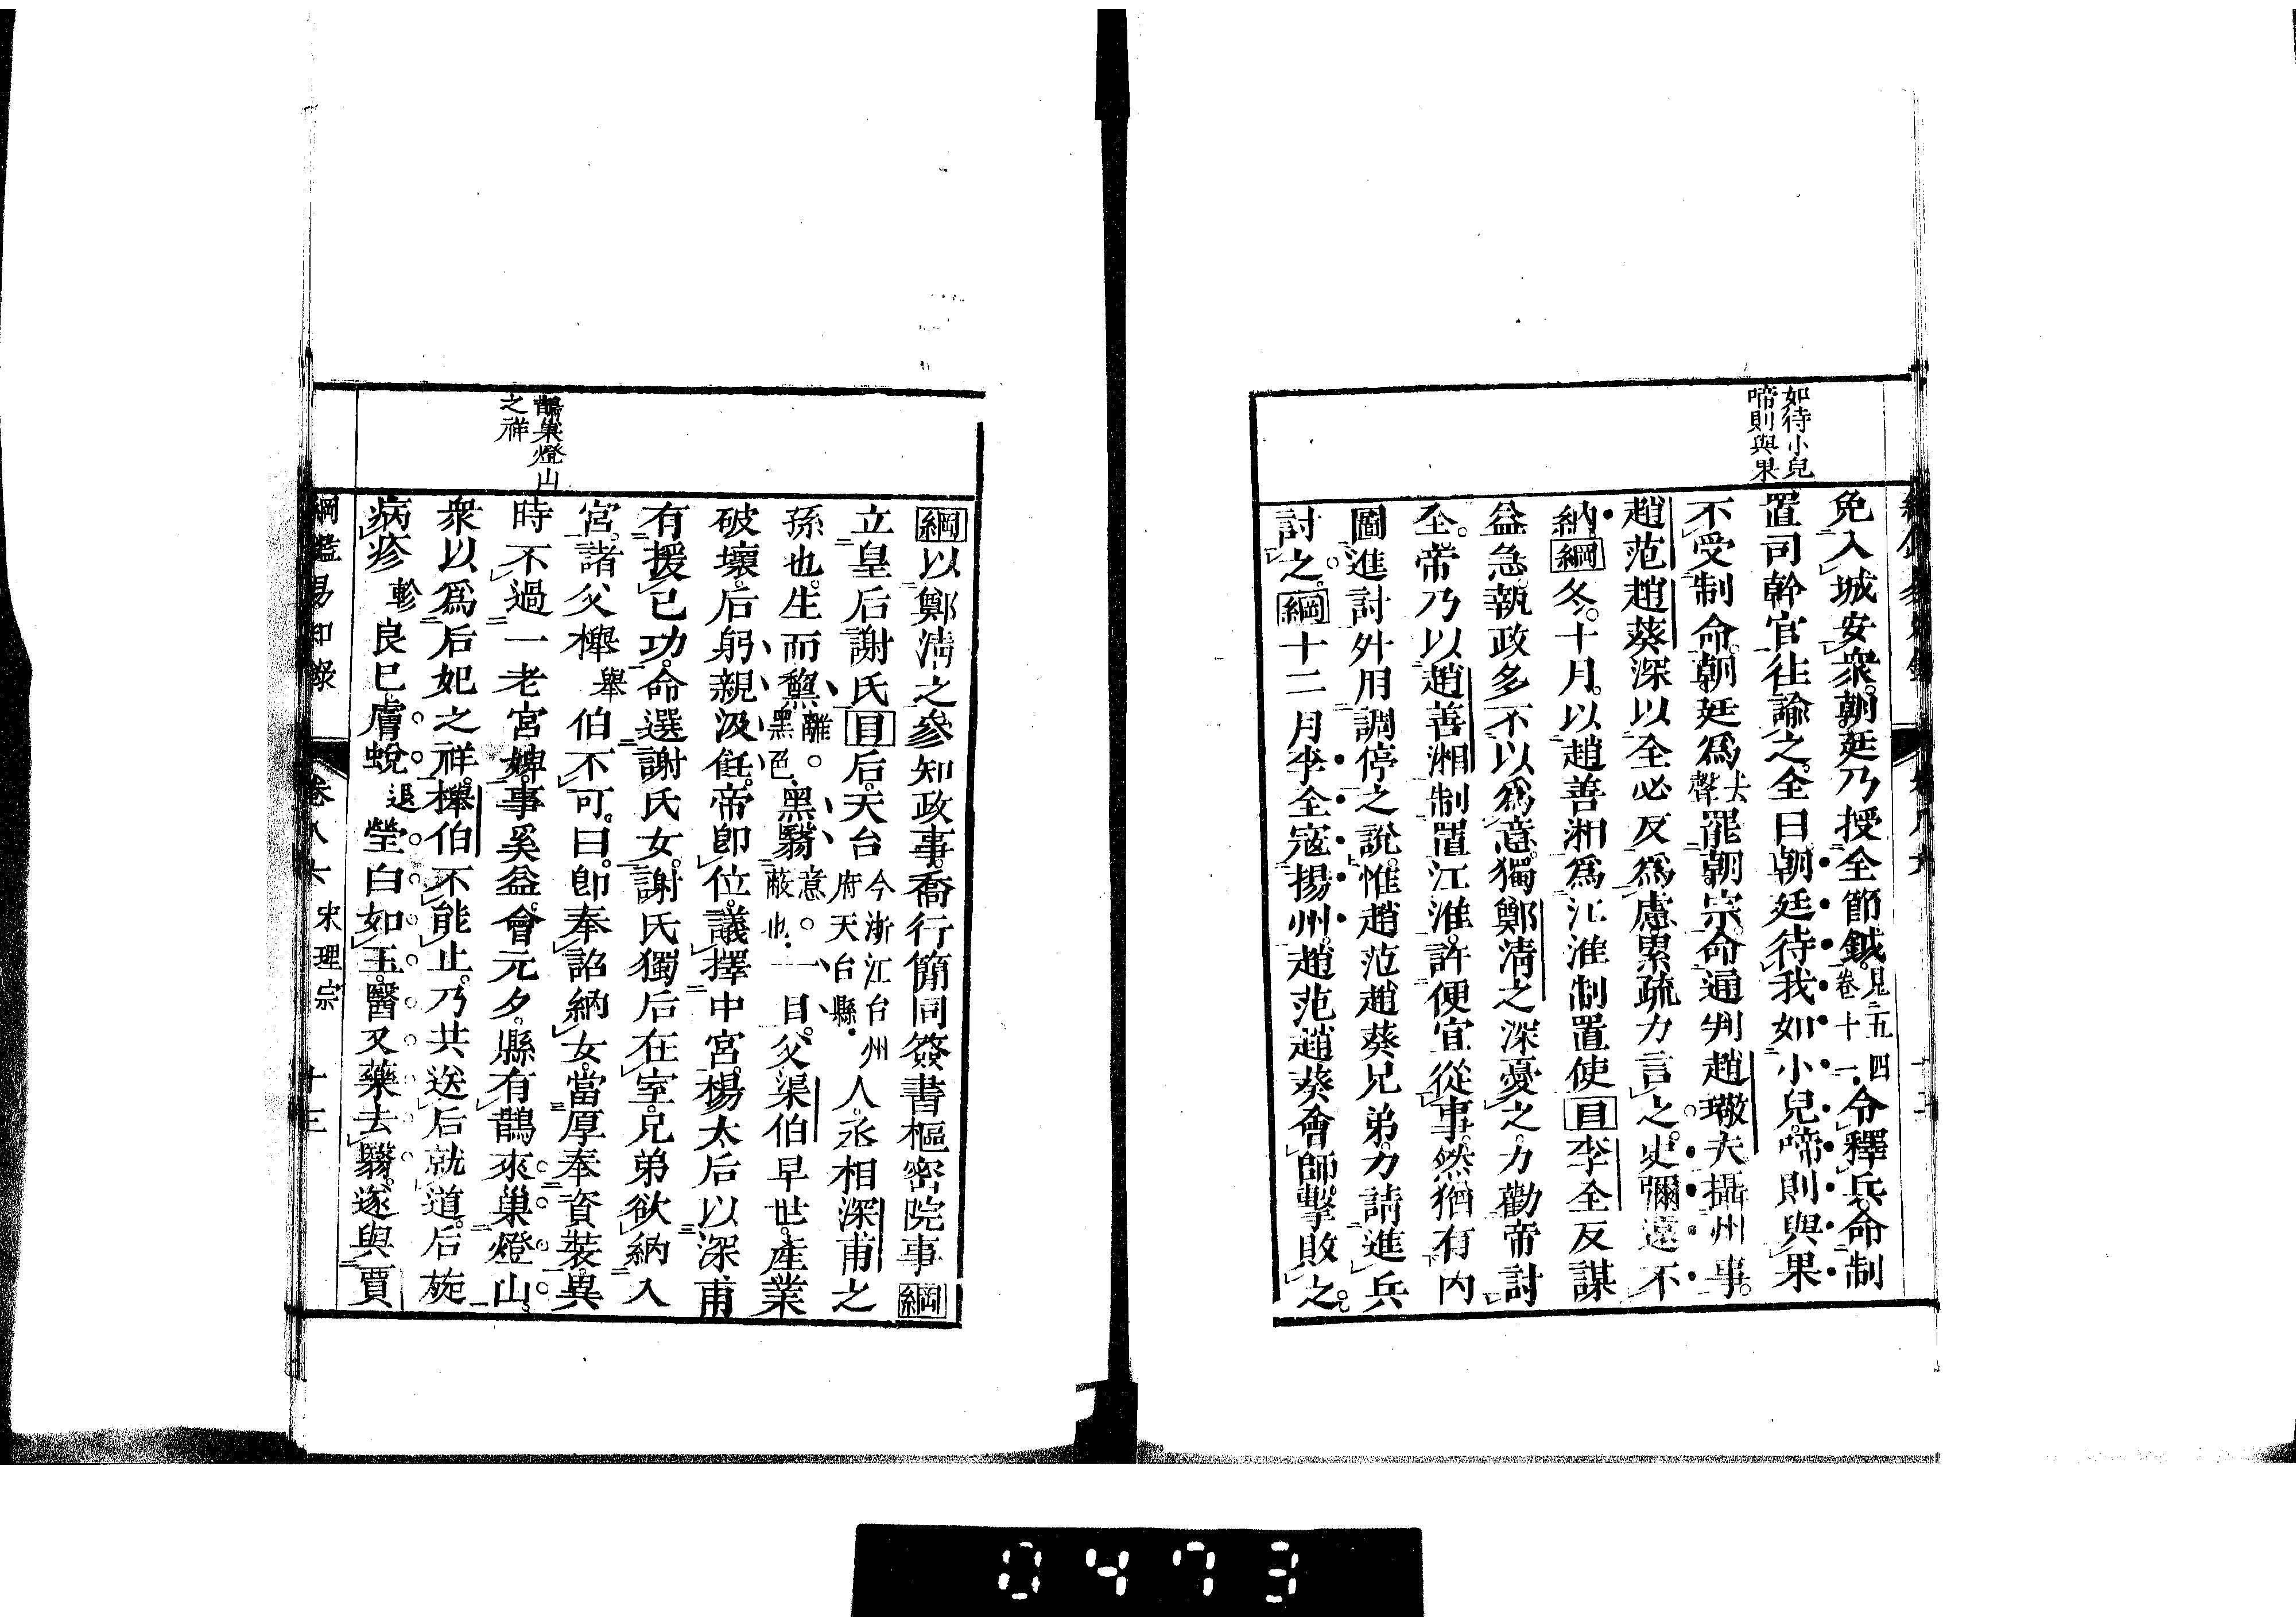 如待小兒
啼則與果
免入城安衆。朝廷乃授全節鉞。見五四卷十一。令釋兵。命制
置司幹官往諭之。全曰朝廷待我如小兒。啼則與果
不受制命。朝廷爲去聲罷朝宗。命通判趙璥夫攝州事。
趙范趙葵深以全必反爲慮。累疏力言之。史彌遠不
納。綱冬。十月。以趙善湘爲江淮制置使目李全反謀
益急。執政多不以爲意。獨鄭淸之深憂之。力勸帝討
全。帝乃以趙善湘制置江淮。許便宜從事。然猶有內
圖進討外用調停之說。惟趙范趙葵兄弟力請進兵
討之。綱十二月李全寇揚州。趙范趙葵會師擊敗之。
鵲巢燈山
之祥
綱以鄭淸之參知政事。喬行簡同簽書樞密院事綱
立皇后謝氏目后。天台今浙江台州府天台縣。人。丞相深甫之
孫也。生而黧離。黑色黑。翳意。蔽也。一目。父渠伯早世。產業
破壞。后躬親汲飪。帝卽位。議擇中宮。楊太后以深甫
有援己功。命選謝氏女。謝氏獨后在室。兄弟欲納入
宮。諸父櫸舉伯不可。曰。卽奉詔納女。當厚奉資裝。異
時不過一老宮婢。事奚益。會元夕。縣有鵲來巢燈山。
衆以爲后妃之祥。櫸伯不能止。乃共送后就道。后旋
病疹軫良已。膚蛻退瑩白如玉。醫又藥去翳。遂與賈
綱鑑易知錄 卷八六 宋理宗 十三